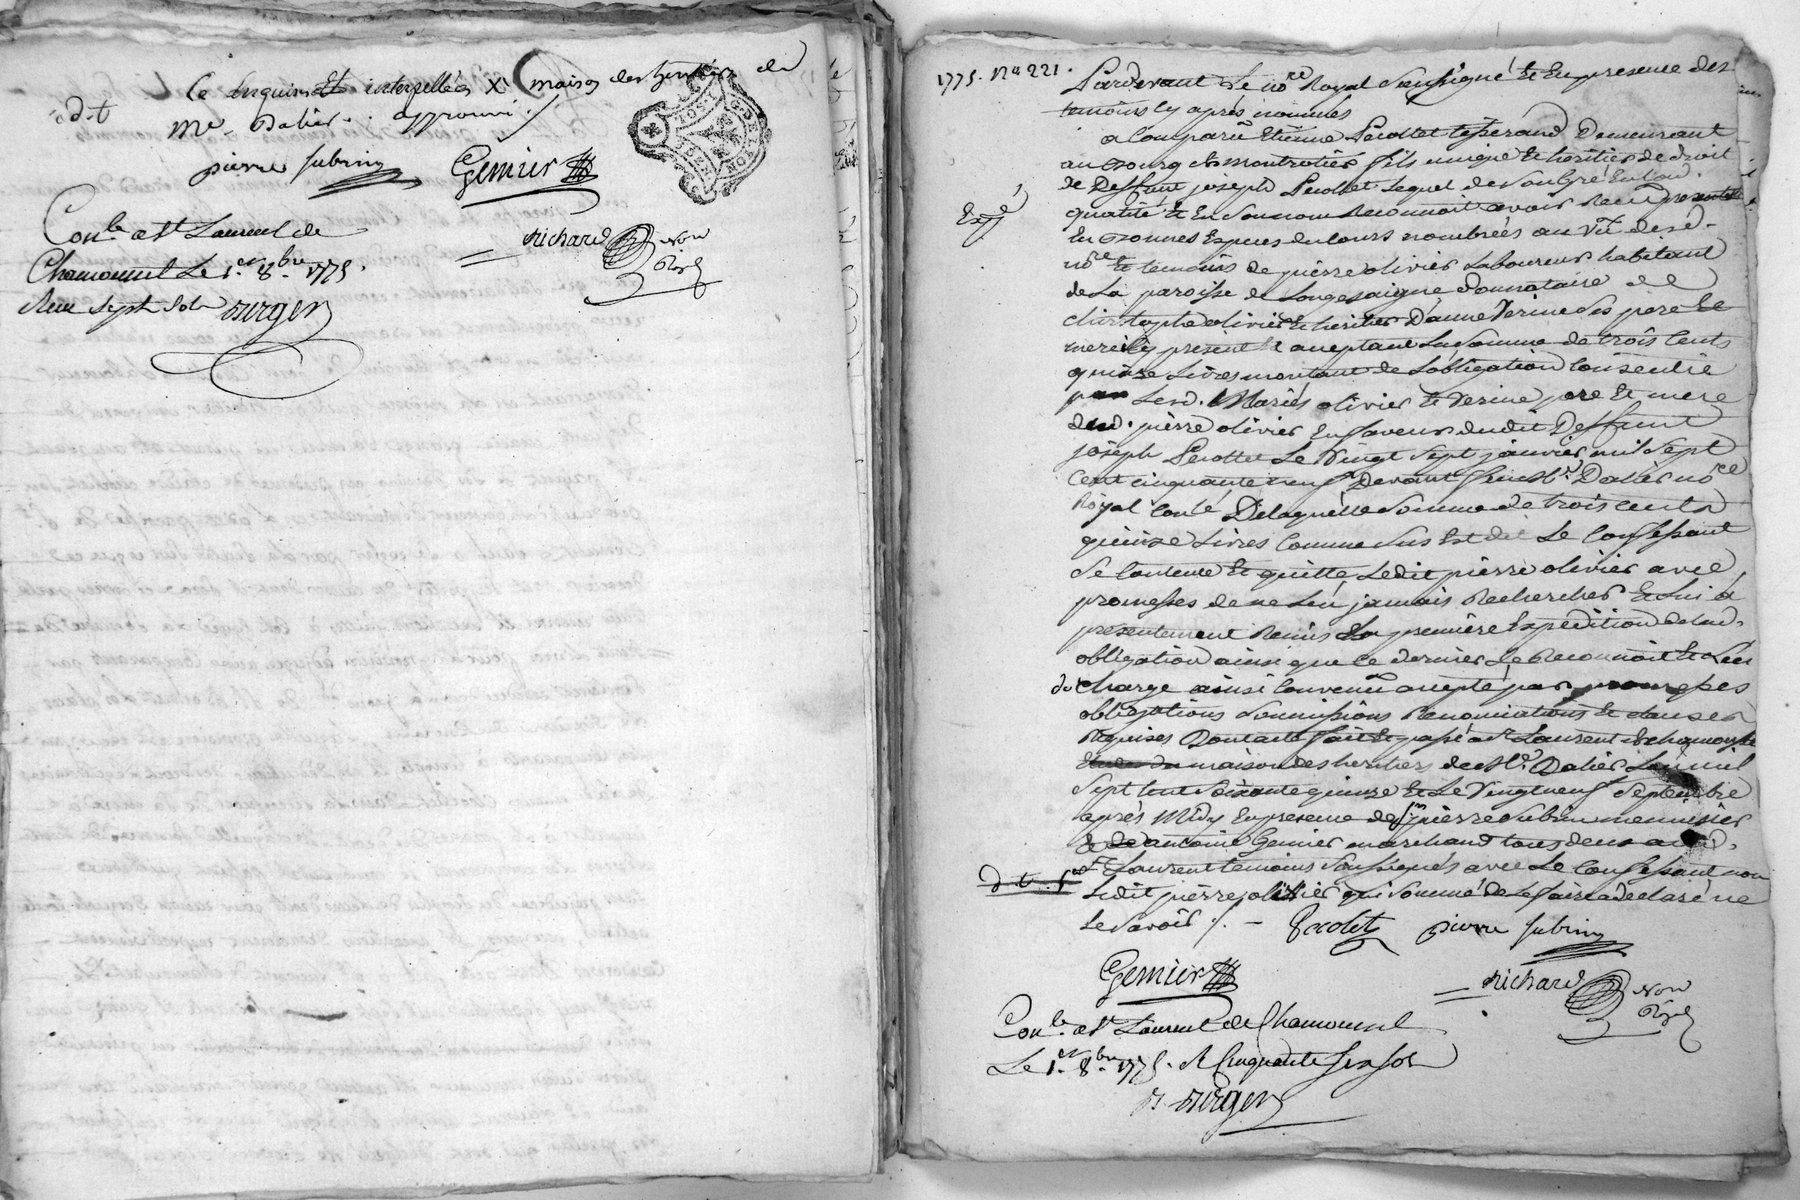 ce enquis et interpellés X maison des heritiers de
d. t.
Me. Dalier. approuvé
pierre subrin Gemier
Richard Nore Royal
Conle a St Laurent de
Chamousset Le 1er 8bre 1775.
Reçu sept sols
1775. No 221.
Pardevant Le nore Royal soussigné Et En presence des
temoins cy après nommés
a Comparu Etienne Pecollet tisserand Demeurant
au Bourg de montrotier fils unique Et heritier de droit
de Deffunt joseph Pecollet Lequel de son bré En lad.
Exp.é
qualité Et En son nom Reconnoit avoir Recu presentement
En Bonnes Especes du cours nombrées au vu desd.
nore Et temoins de pierre olivier Laboureur habitant
de La paroisse de Longessaigne donnataire de
christophe olivier Et heritier D'anne Verine ses pere Et
mere icy present Et aceptant La Somme de trois cents
quinze Livres montant de Lobligation consentie
par Lesd. Mariés olivier Et Verine pere Et mere
dud. pierre olivier En faveur dudit Deffunt
joseph Pecollet Le vingt sept janvier mil sept
Cent cinquante neuf Devant feu Me. Dalier nore
Royal Conlé De laquelle Somme de trois cents
quinze Livres Comme sus Est dit Le Confessant
Se Contente Et quitte Ledit pierre olivier avec
promesses de ne Len jamais Rechercher Et Lui a
presentement Remis La première Expedition de lad.
obligation ainsi que ce dernier Le Reconnoit Et Len
d. t.
charge ainsi Convenu acepté par promesses
obligations soumissions Renonciations Et clauses
Requises Dont acte fait Et passé a St Laurent de chamousset
maison des heritiers de Me. Dalier Lan mil
Sept Cent Soixante quinze Et Le Vingt neuf Septembre
après Midy En presence de sr. pierre subrin mennisier
Et de antoine Gemier marchand tous deux aud.
St Laurent temoins soussignés avec Le Confessant non
Ledit pierre olivier qui sommé de Le faire a declaré ne
Le savoir ./. Pecolet pierre subrin
Gemier Richard Nore Royal
Conle a St Laurent de Chamousset
Le 1er 8bre 1775. R Cinquante six sols